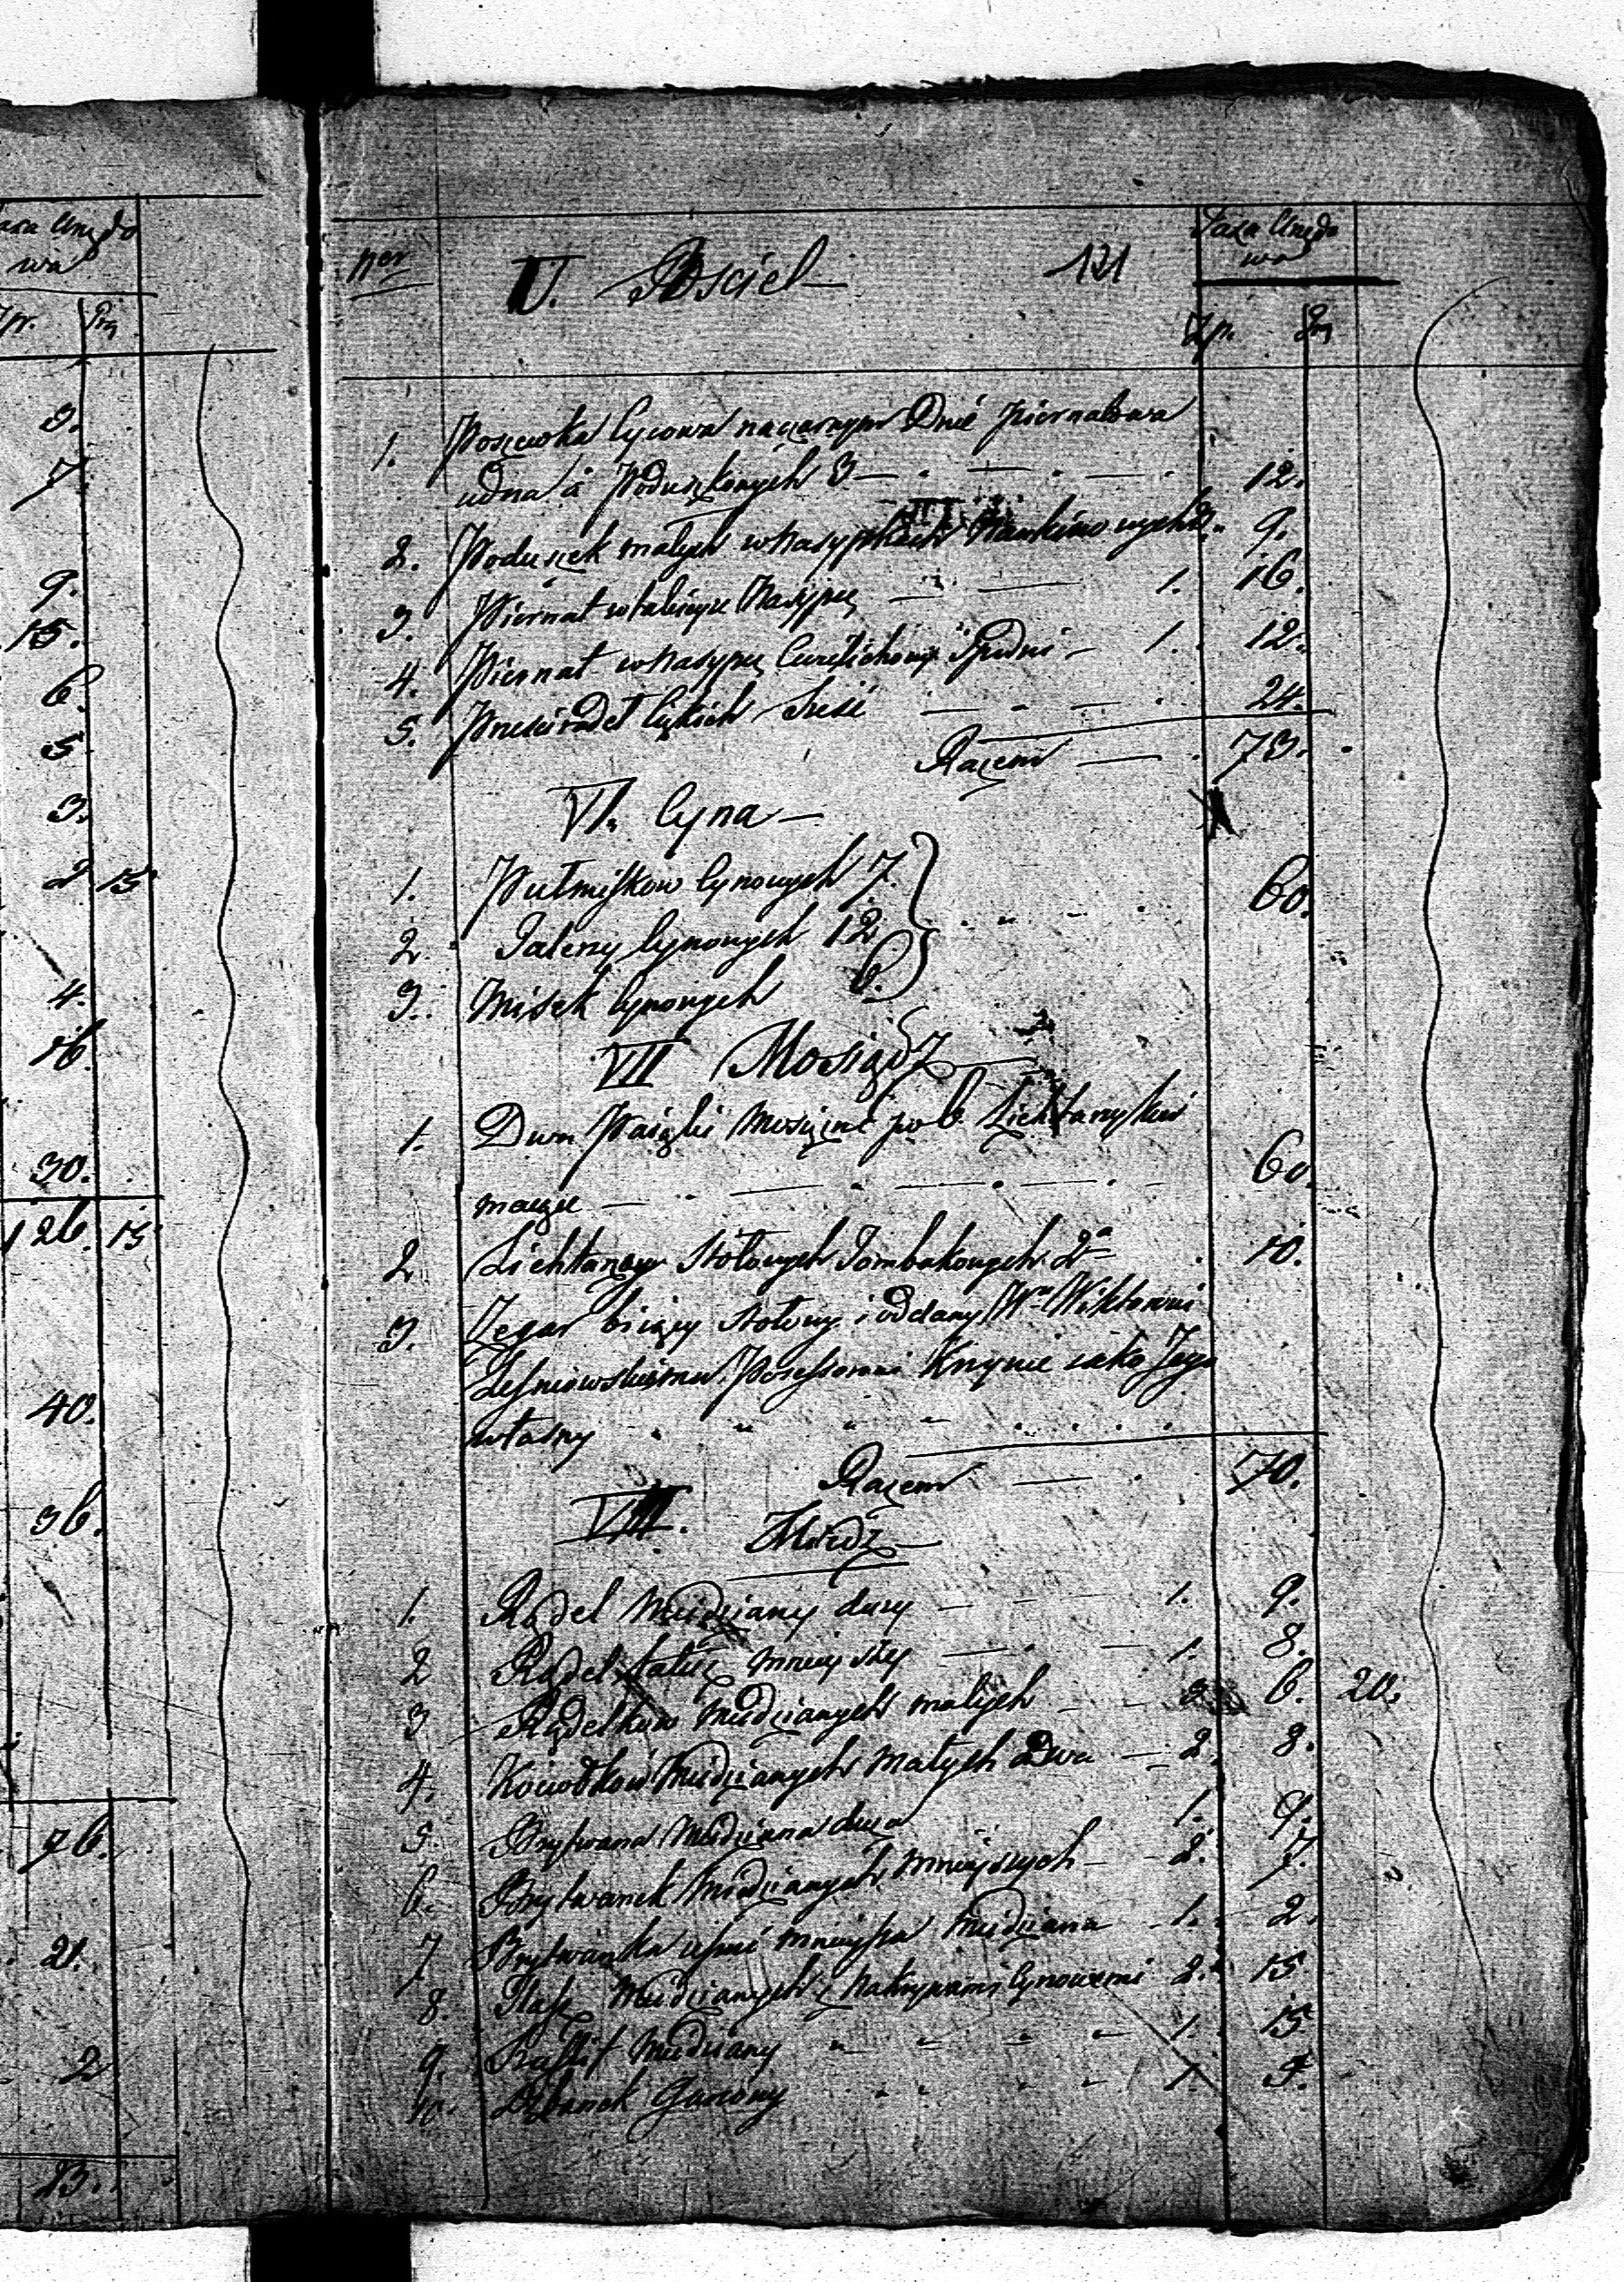 Taxa Urzędo
wa
Zpr. gr
3.
7
9.
15.
6.
5
3.
2 15
4.
16.
30.
126. 15
40.
36.
76.
21.
2
23.
ner V. Posciel 121 Taxa Urzędo
wa
Zp. gr
1. Poszewka Cycowa naczarnym Dnie pierzatowa
udna á Poduszkowych 3 12.
2. Poduszek małych wNasypkach Nankinowych 2. 9.
3. Piernat Nasypie 1. 16.
4. Piernat wNasypie Spodni 1. 12.
5. Prześcieradeł 24.
Razem 73.
VI. Cyna
1. Pułmiskow Cynowych 7.
2. Talerzy Cynowych 12 60.
3. Misek Cynowych 6.
VII Mosiądz
1. Dwa Mosiężne po 6. Lichtarzykow
maiące 60.
2 Lichtarzy stołowych Tombakowych 2 10.
3. Zegar biiący stołowy i oddany Wu Wiktorowi
Leśniowskiemu Possessorowi Krzynie iako Jego
własny
Razem 70.
VIII. Miedź
1. Rądel Miedziany duży 1. 9.
2 Rądel takiż mnieyszy 1. 8.
3 Rądelkow Miedzianych małych 3 6. 20.
4. Kociołków Miedzianych małych Dwa 2. 8.
5. Brytwana Miedziana duża 1. 9.
6. Brytwanek Miedzianych mnieyszych 2. 7.
7 Brytwanka mnieysza Miedziana 1. 2.
8. Flasz Miedzianych z Nakrywami Cynowemi 2. 15
9. Miedziany 1. 15
10. Dzbanek 1 3.